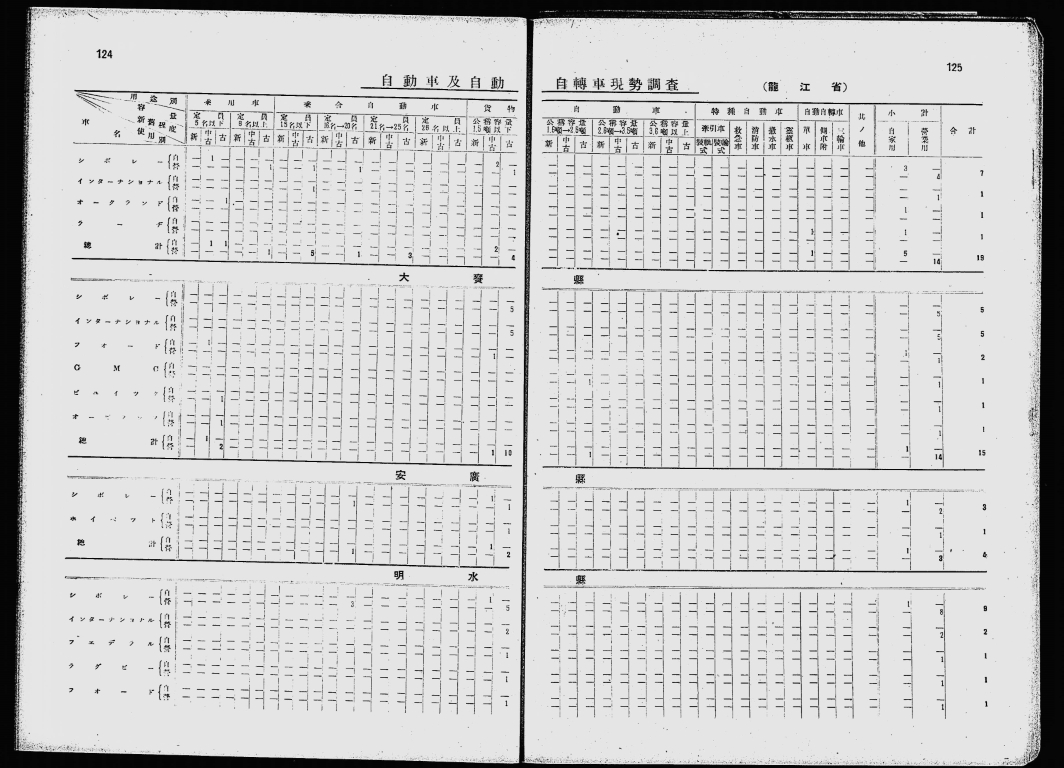 124
自動車及自動
用途別
容量
新程度
務使用別
車名
乗用車
乗合自動車
貨物
定員5名以下
定員6名以上
定員15名以下
定員16名→20名
定員21名→25名
定員26名以上
公称容量1.5噸以下
新 中古 古 新 中古 古 新 中古 古 新 中古 古 新 中古 古 新 中古 古 新 中古 古
シボレー 自 1 2
営 1 1 1 1
インターナショナル 自
営 1
オークランド 自 1
営
ラーヂ 自
営
總計 自 1 1 2
営 1 5 1 3 4
大賚
シボレー 自
営 5
インターナショナル 自
営 5
フオード 自 1
営 1
GMC 自
営
ビユイック 自
営 1
自
営 1
總計 自 1
営 2 1 10
安廣
シボレー 自 1
営 1 1
自
営 1
總計 自 1
営 1 2
明水
シボレー 自 1
営 3 5
インターナショナル 自
営 2
フエデラル 自
営 1
自
営 1
フオード 自
営 1
125
自轉車現勢調査
(龍江省)
自動車
特種自動車
自動自轉車
其ノ他
小計
合計
公称容量1.5噸→2.5噸
公称容量2.5噸→3.5噸
公称容量3.5噸以上
牽引車
救急車
消防車
撒水車
霊柩車
單車
側車附
三輪車
自家用
營業用
新 中古 古 新 中古 古 新 中古 古
3
4 7
1 1
1 1
1 1 1
1 5
14 19
縣
5 5
5 5
1
1 2
1 1 1
1 1
1 1
1
1 14 15
縣
1
2 3
1 1
1
3 4
縣
1
8 9
2 2
1 1
1 1
1 1